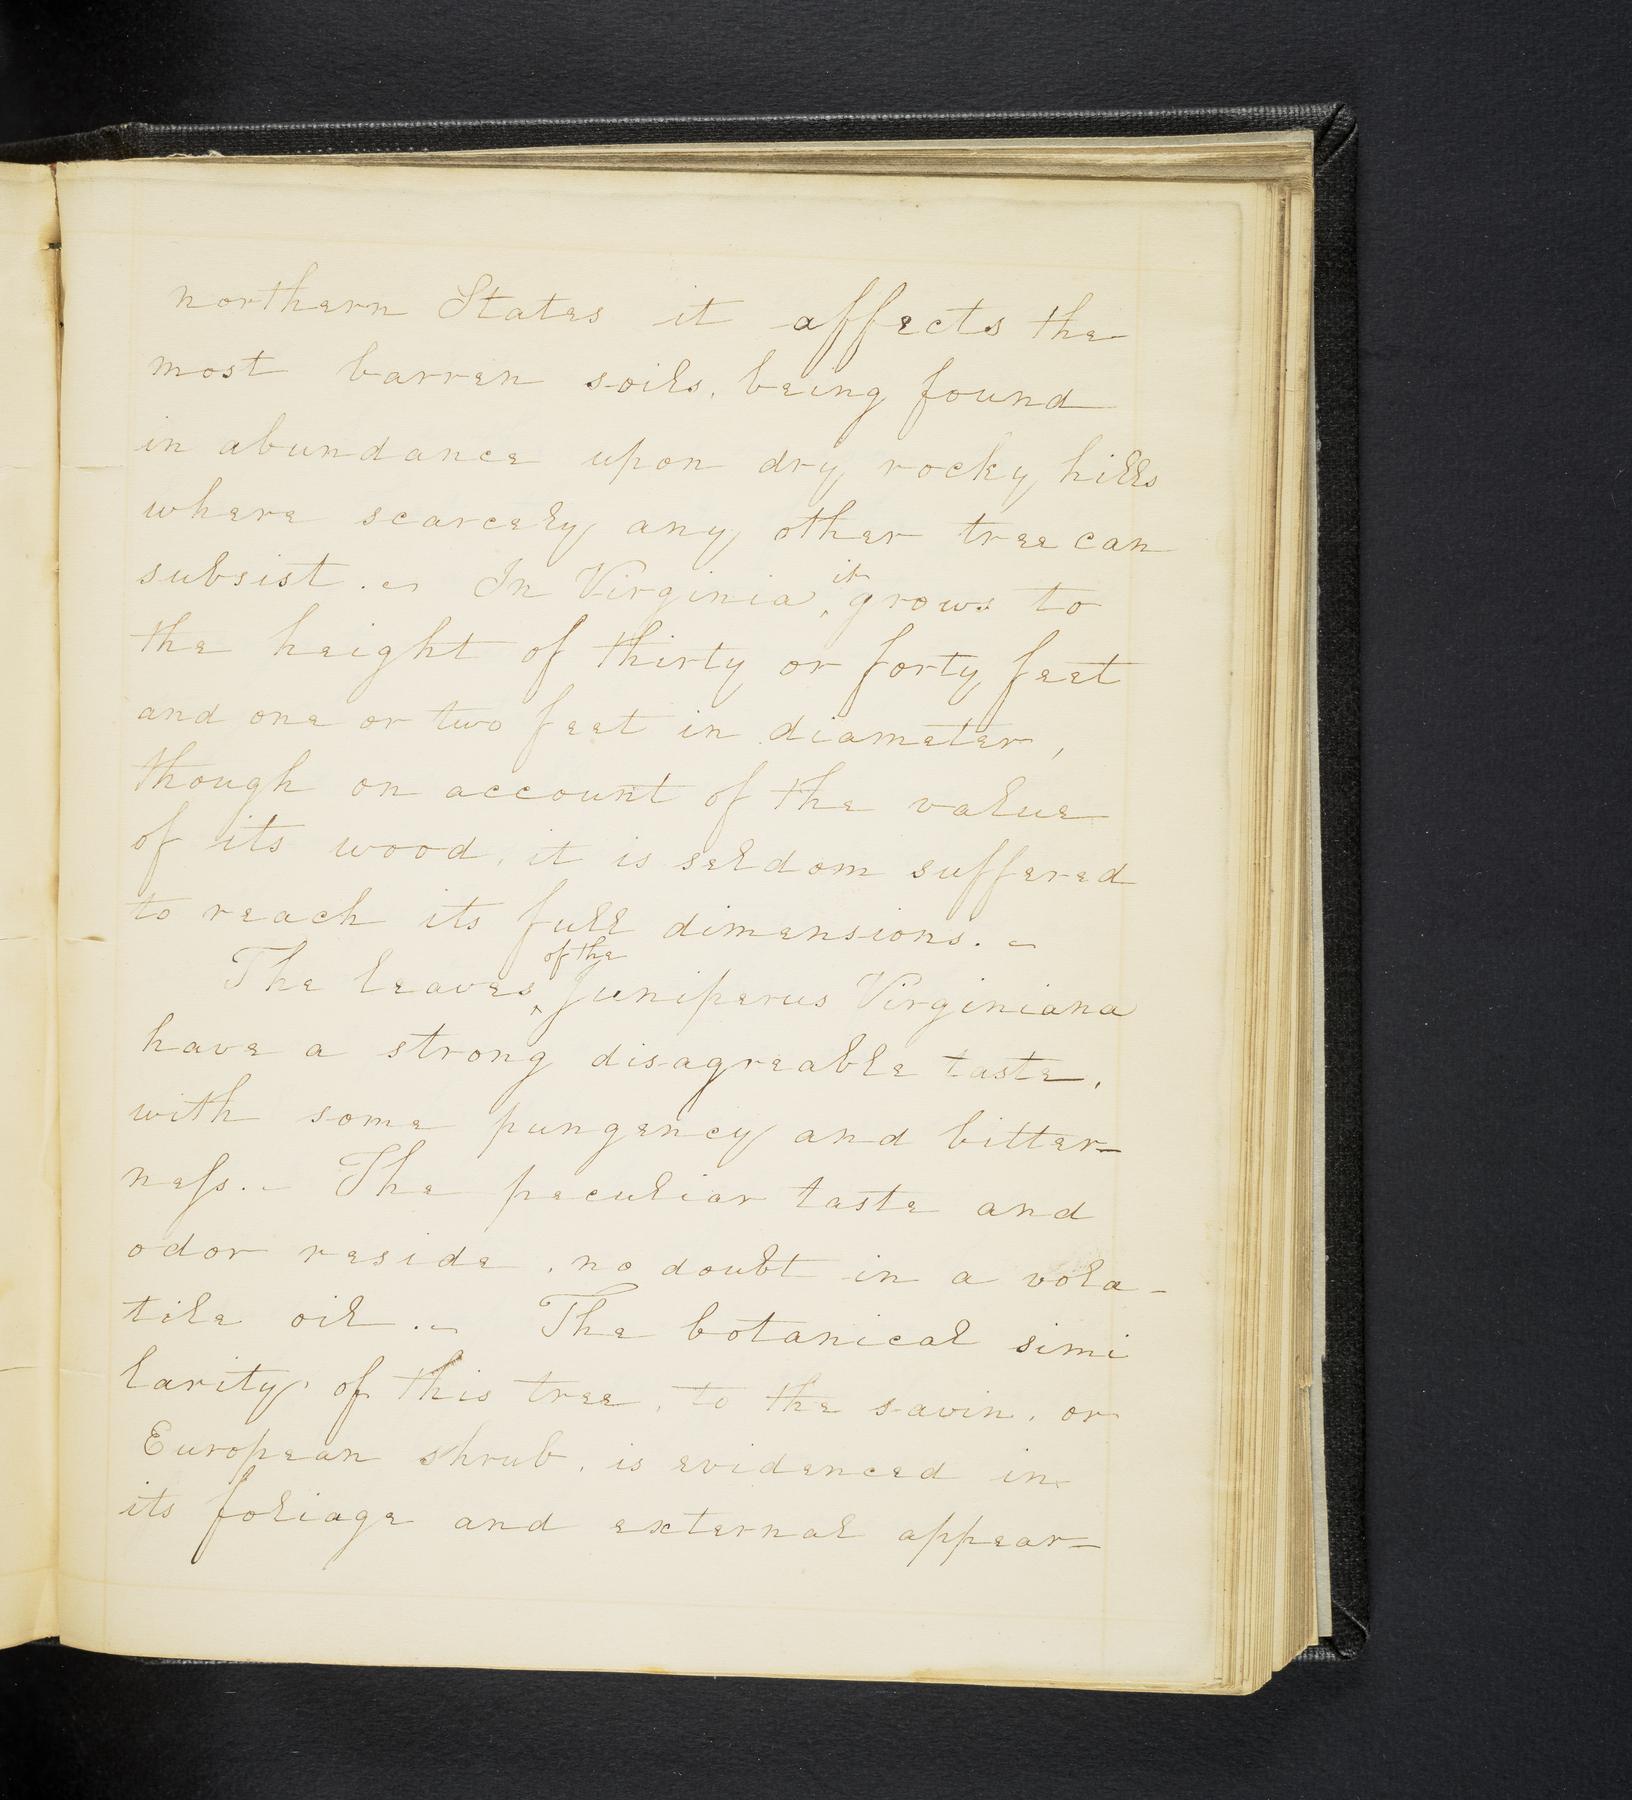 northern States it affects the
most barren soils, being found
in abundance upon dry rocky hills
where scarcely any other tree can
subsist. ~ In Virginia, it grows to
the height of thirty or forty feet
and one or two feet in diameter,
though on account of the value
of its wood, it is seldom suffered
to reach its full dimensions. ~
The leaves of the Juniperus Virginiana
have a strong disagreable taste,
with some pungency and bitter-
neſs. - The peculiar taste and
odor reside, no doubt in a vola-
tile oil. - The botanical simi
larity, of this tree, to the savin, or
European shrub, is evidenced in
its foliage and external appear-